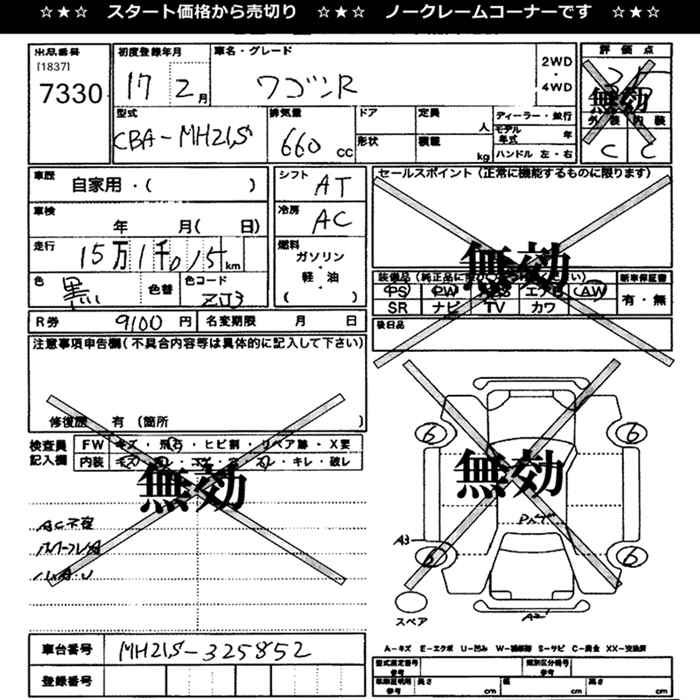 ☆★☆ スタート価格から売切り ☆★☆ ノークレームコーナーです ☆★☆
出品番号
[1837]
7330
初度登録年月
17 2月
車名・グレード
ワゴンR
2WD
・
4WD
評価点
無効
外装 内装
C C
型式
CBA-MH21S
排気量
660 CC
ドア
形状
定員
人
積載
kg
ディーラー・並行
モデル年式 年
ハンドル 左・右
車歴
自家用・( )
車検
年 月( 日)
走行
15万1千015km
色
黒
色替
色コード
ZJ3
シフト
AT
冷房
AC
燃料
ガソリン
・
軽・油
( )
セールスポイント(正常に機能するものに限ります)
無効
PS PW エアB AW
SR ナビ TV カワ
新車保証書
有・無
後日品
R券 9100円
名変期限 月 日
注意事項申告欄(不具合内容等は具体的に記入して下さい)
修復歴 有(箇所 )
検査員
記入欄
FW キズ・飛石・ヒビ割・リペア跡・X要
内装 キレ・破れ
無効
AC不良
無効
6 6
6 6
A3
A2
スペア
車台番号
MH21S-325852
登録番号
A-キズ E-エクボ U-凹み W-補修跡 S-サビ C-腐食 XX-交換済
型式指定番号
参考
類別区分番号
参考
長さ cm
幅 cm
高さ cm